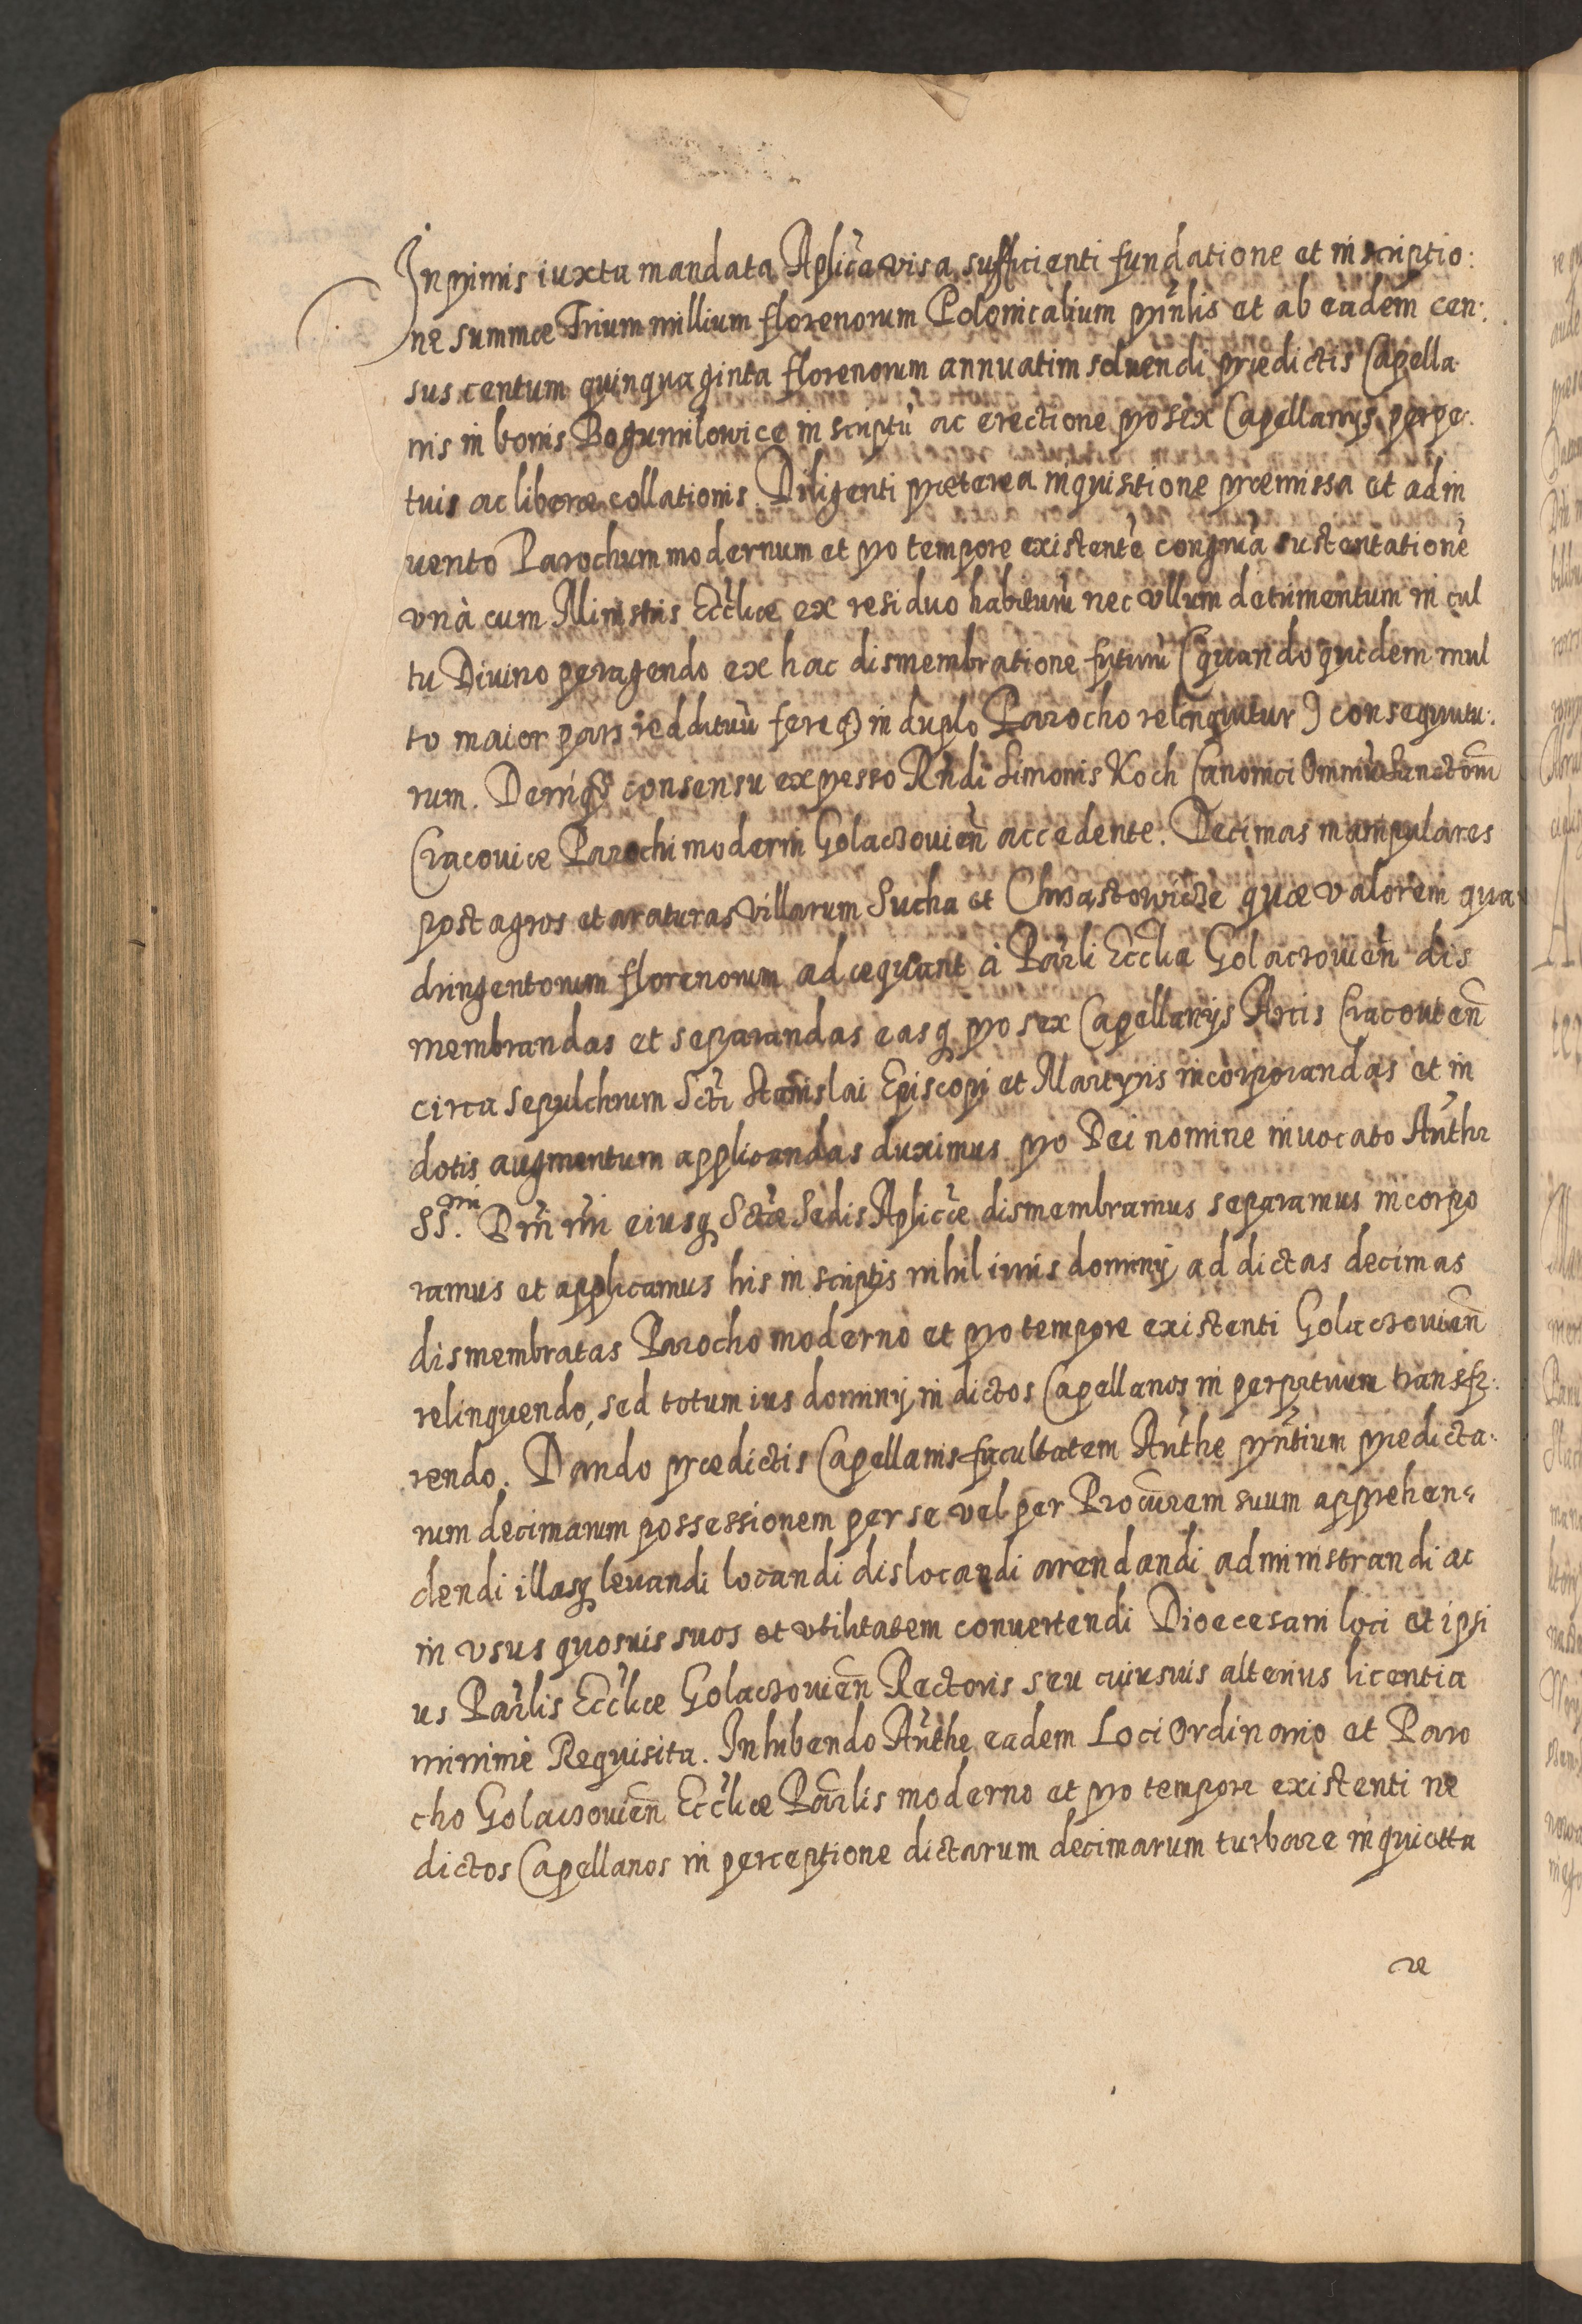 Inprimis iuxta mandata Aplica visa sufficienti fundatione et inscriptio:
ne summæ Trium millium florenorum Polonicalium prinlis et ab eadem cen:
sus centum quinquaginta florenorum annuatim soluendi prædictis Capella
nis in bonis Bogumilowice inscriptũ ac erectione pro sex Capellanijs perpe:
tuis ac liberæ collationis. Diligenti præterea inquisitione præmissa et adin
uento Parochum modernum et pro tempore existentē congruã sustentationē
vnà cum Ministris Ecclice ex residuo habiturũ nec vllum detrimentum in cul
tu Diuino peragendo ex hac dismembratione futurũ (quando quidem mul
to maior pars reddituũ fereq in duplo Parocho relinquitur) consequutu:
rum. Deniq consensu expresso Rndi Simonis Koch Canonici Omniũ Sanctorũ
Cracouiæ Parochi moderni Golaczouien accedente. Decimas manipulares
post agros et araturas Villarum Sucha et Chwastowicze quæ valorem qua
dringentorum florenorum adæquant à Parli Ecclia Golaczouien dis
membrandas et separandas easq pro sex Capellanijs Arcis Cracouien
circa Sepulchrum Scti Stanislai Episcopi et Martyris incorporandas et in
dotis augmentum applicandas duximus pro Dei nomine inuocato Authe
SS.mi Dni nri eiusq Sctæ Sedis Aplicæ dismembramus separamus incorpo
ramus et applicamus his in scriptis nihil iuris dominij ad dictas decimas
dismembratas Parocho moderno et pro tempore existenti Golaczouien
relinquendo, sed totum ius dominij in dictos Capellanos in perpetuum transfe:
rendo. Dando prædictis Capellanis facultatem Authe prntium prædicta:
rum decimarum possessionem per se vel per Procurem suum apprehen:
dendi illasq leuandi locandi dislocandi arendandi administrandi ac
in vsus quosuis suos et vtilitatem conuertendi Dioecesani loci et ipsi
us Parlis Eccliæ Golaczouien Rectoris seu cuiusuis alterius licentia
minimè Requisita. Inhibendo Authe eadem Loci Ordinario et Paro
cho Golaczouien Eccliæ Parlis moderno et pro tempore existenti ne
dictos Capellanos in perceptione dictarum decimarum turbare inquietta
re